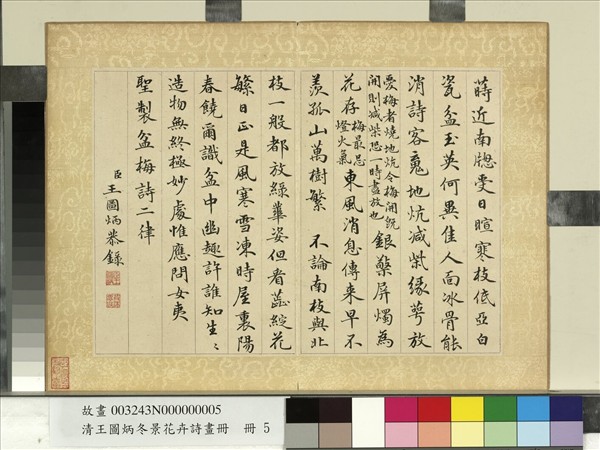 蒔近南牕受日暄寒枝低亞白
瓷盆玉英何異佳人面冰骨能
消詩客魂地炕減柴緣萼放
愛梅者燒地炕令梅開旣
開則減柴恐一時盡放也
銀檠屏燭為
花存
梅最忌
燈火氣
東風消息傳來早不
羨孤山萬樹繁 不論南枝與北
枝一般都放綠萼姿但看蕋綻花
繁日正是風寒雪凍時屋裏陽
春饒爾識盆中幽趣許誰知生〻
造物無終極妙處惟應問女夷
聖製盆梅詩二律
臣王圖炳恭錄
故畫 003243N000000005
清王圖炳冬景花卉詩畫冊 冊 5